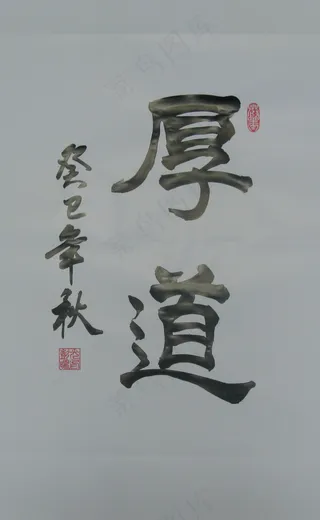 厚道
癸巳年秋